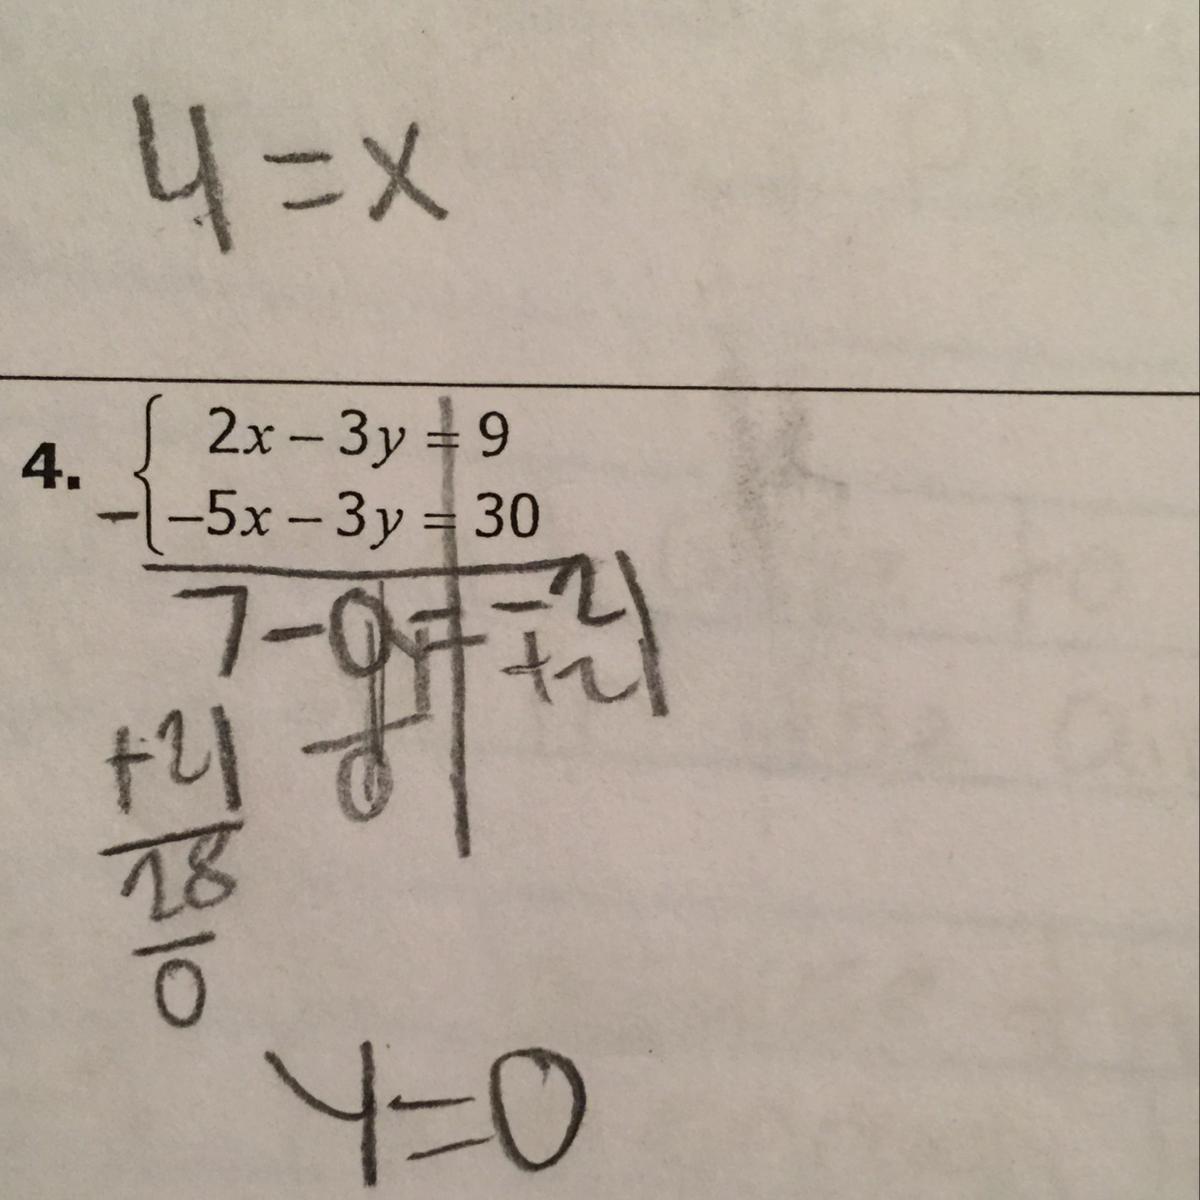 4 = x
4. 2x – 3y = 9
– –5x – 3y = 30
7 – 0y = –21
+21 0 +21
28
0
y = 0